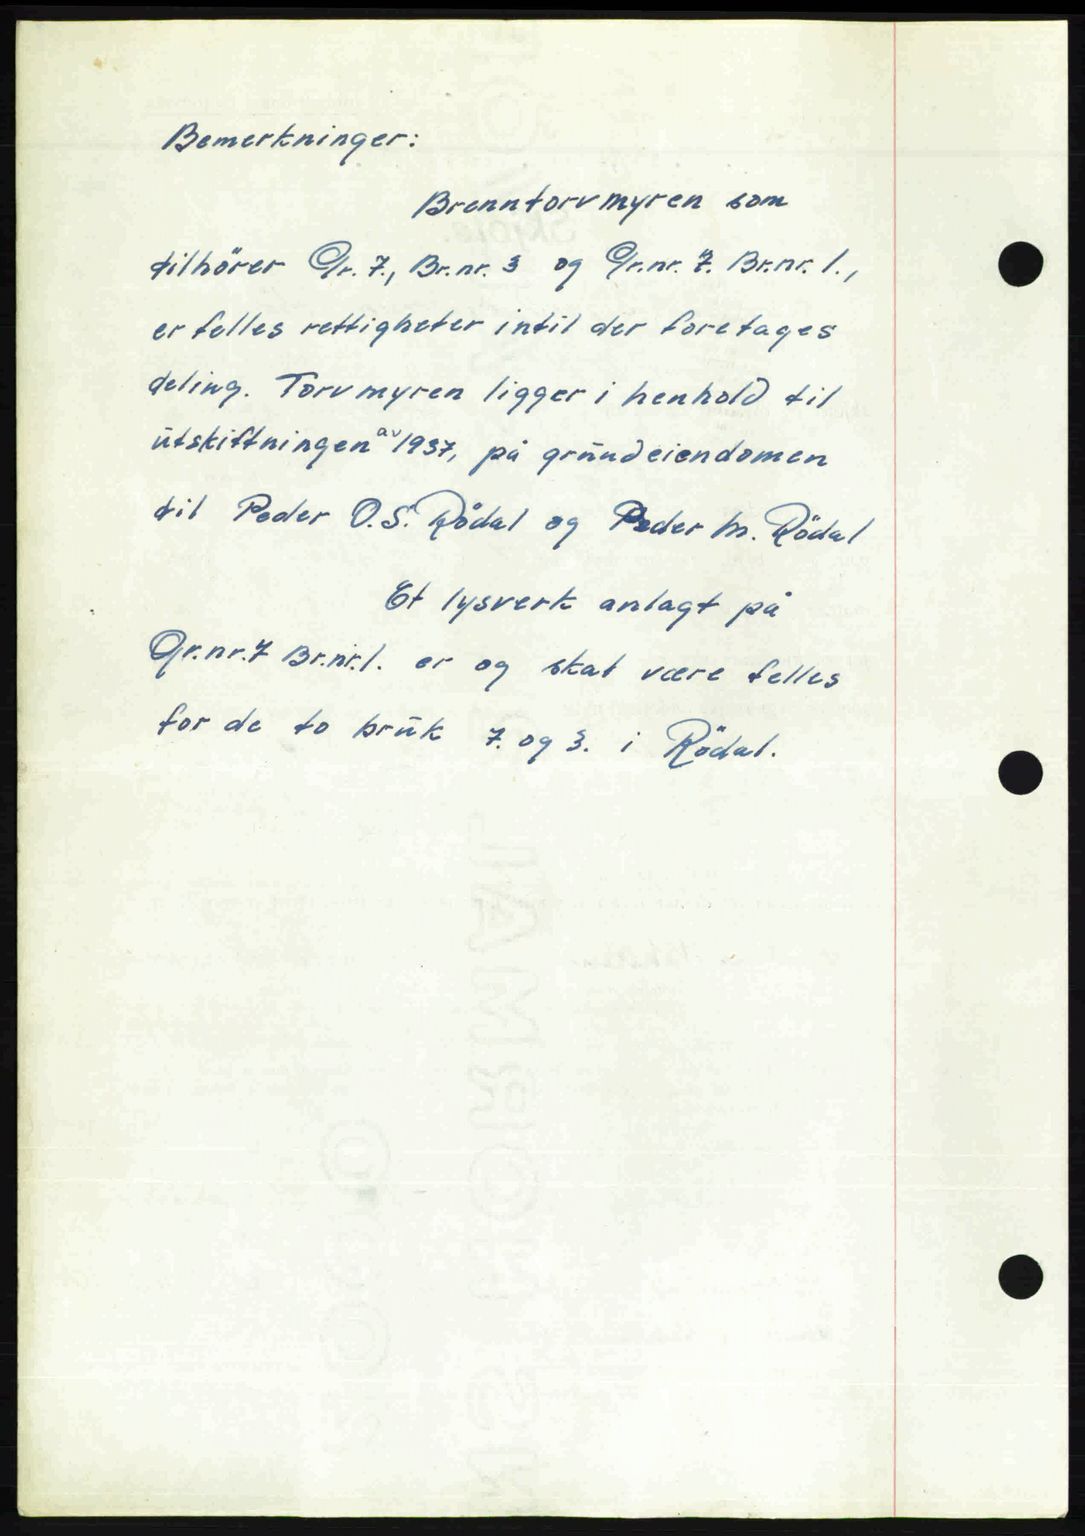 Bemerkninger:
Brenntorvmyren som
tilhörer Gr. 7., Br. nr. 3 og Gr. nr. 7. Br. nr. 1.,
er felles rettigheter intil der foretages
deling. Torvmyren ligger i henhold til
ütskiftningen av 1937, på grünneiendomen
til Peder O. S. Rödal og Peder M. Rödal
Et lysverk anlagt på
Gr. nr. 7 Br. nr. 1. er og skal være felles
for de to brük 7. og 3. i Rödal.